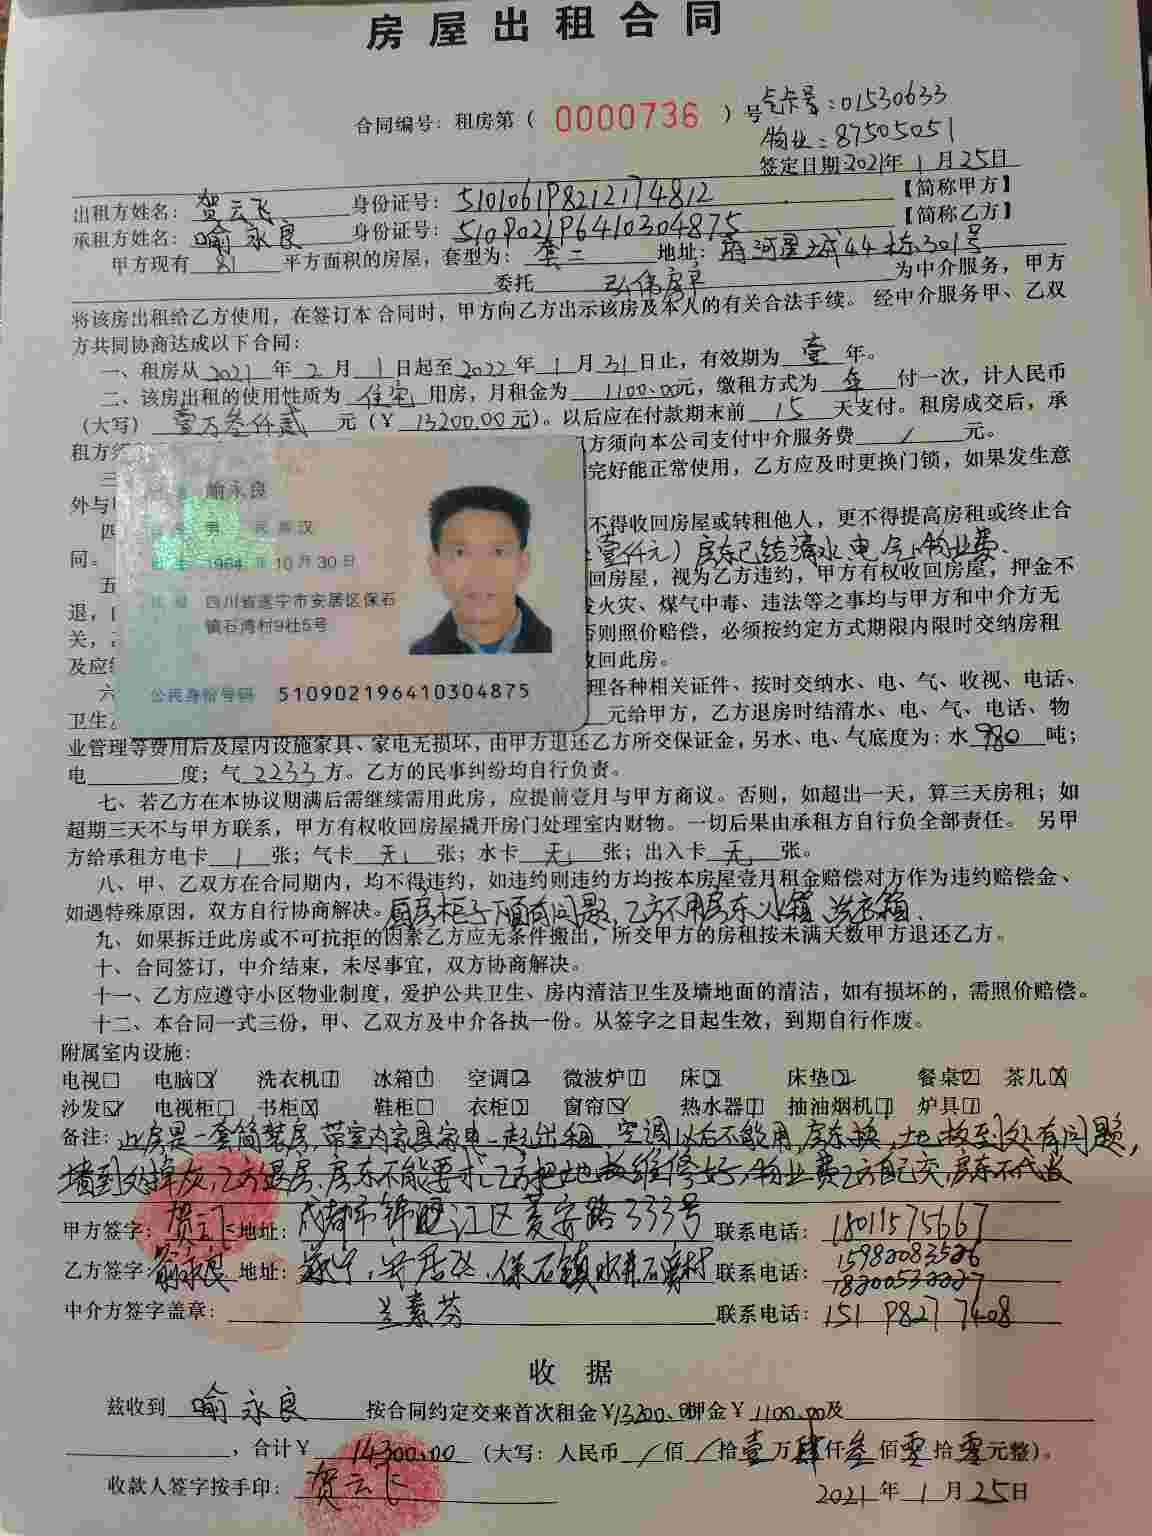 房屋出租合同
合同编号：租房第（ 0000736 ）号 气卡号：01530633
物业：87505051
签定日期2021年1月25日
出租方姓名：贺云飞 身份证号：510106198212174812 【简称甲方】
承租方姓名：喻永良 身份证号：510902196410304875 【简称乙方】
甲方现有 81 平方面积的房屋，套型为：套二 地址：府河星城44栋301号
委托 弘伟房产 为中介服务，甲方
将该房出租给乙方使用，在签订本合同时，甲方向乙方出示该房及本人的有关合法手续。经中介服务甲、乙双
方共同协商达成以下合同：
一、租房从2021年2月1日起至2022年1月31日止，有效期为壹年。
二、该房出租的使用性质为住宅用房，月租金为1100.00元，缴租方式为年付一次，计人民币
（大写）壹万叁仟贰元（￥13200.00元）。以后应在付款期末前15天支付。租房成交后，承
租方 方须向本公司支付中介服务费 / 元。
三 完好能正常使用，乙方应及时更换门锁，如果发生意
外与
四 不得收回房屋或转租他人，更不得提高房租或终止合
同。 壹仟元）房东已结清水电气物业费.
五 回房屋，视为乙方违约，甲方有权收回房屋，押金不
退， 火灾、煤气中毒、违法等之事均与甲方和中介方无
关， 否则照价赔偿，必须按约定方式期限内限时交纳房租
及应 收回此房。
六 理各种相关证件、按时交纳水、电、气、收视、电话、
卫生 元给甲方，乙方退房时结清水、电、气、电话、物
业管理等费用后及屋内设施家具、家电无损坏，由甲方退还乙方所交保证金，另水、电、气底度为：水980吨；
电 度；气2233方。乙方的民事纠纷均自行负责。
喻永良
男 民族 汉
1964年10月30日
四川省遂宁市安居区保石
镇石湾村9社5号
公民身份号码 510902196410304875
七、若乙方在本协议期满后需继续需用此房，应提前壹月与甲方商议。否则，如超出一天，算三天房租；如
超期三天不与甲方联系，甲方有权收回房屋撬开房门处理室内财物。一切后果由承租方自行负全部责任。 另甲
方给承租方电卡 1 张；气卡 无 张；水卡 无 张；出入卡 无 张。
八、甲、乙双方在合同期内，均不得违约，如违约则违约方均按本房屋壹月租金赔偿对方作为违约赔偿金、
如遇特殊原因，双方自行协商解决。厨房柜子下面有问题，乙方不用房东冰箱 洗衣箱.
九、如果拆迁此房或不可抗拒的因素乙方应无条件搬出，所交甲方的房租按未满天数甲方退还乙方。
十、合同签订，中介结束，未尽事宜，双方协商解决。
十一、乙方应遵守小区物业制度，爱护公共卫生、房内清洁卫生及墙地面的清洁，如有损坏的，需照价赔偿。
十二、本合同一式三份，甲、乙双方及中介各执一份。从签字之日起生效，到期自行作废。
附属室内设施：
电视 电脑 洗衣机 冰箱 空调 微波炉 床 床垫 餐桌 茶几
沙发 电视柜 书柜 鞋柜 衣柜 窗帘 热水器 抽油烟机 炉具
备注：此房是一套简装房，带室内家具家电一起出租，空调以后不能用，房东换，土地板到处有问题，
墙到处掉灰，乙方退房，房东不能要求乙方把地板维修好，物业费乙方自己交，房东不代收
甲方签字：贺云飞 地址：成都市锦江区菱安路333号 联系电话：18011575667
乙方签字：喻永良 地址：遂宁，安居区，保石镇 石湾村 联系电话：15982083526
18200532227
中介方签字盖章： 兰素芬 联系电话：15198277408
收 据
兹收到 喻永良 按合同约定交来首次租金￥13200.00押金￥1100.00及
，合计￥14300.00（大写：人民币 / 佰 / 拾壹万肆仟叁佰零拾零元整）。
收款人签字按手印：贺云飞 2021年1月25日